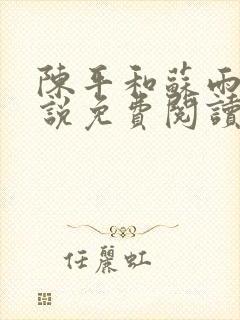 陳平和蘇雨
說免費閱讀
任麗虹